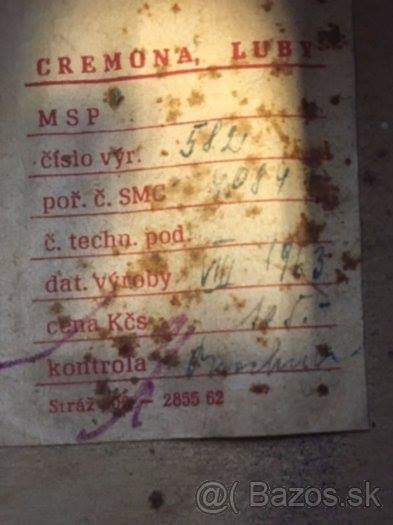 CREMONA, LUBY
MSP
číslo výr. 582
poř. č. SMC 9084
č. techn. pod.
dat. výroby VIII 1963
cena Kčs 105.-
kontrola
Stráž 2855 62
@( Bazos.sk